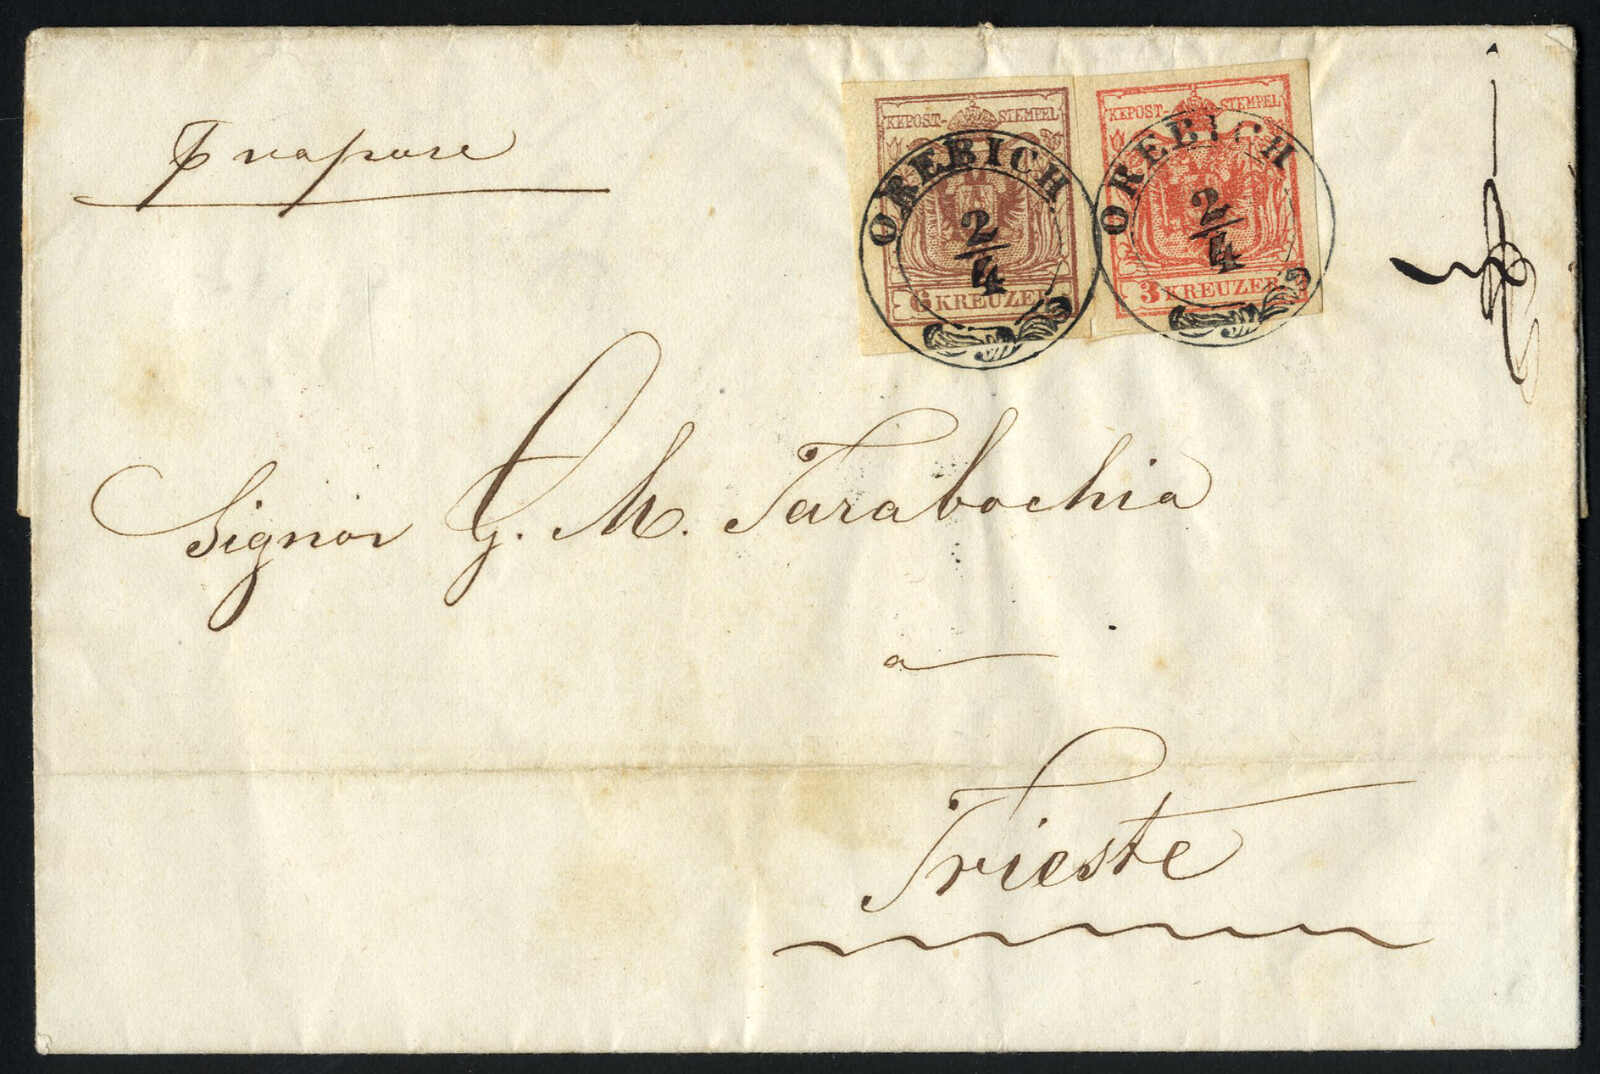 KKPOST-STEMPEL
6 KREUZER
KKPOST-STEMPEL
3 KREUZER
OREBICH
2/4
OREBICH
2/4
p vapore
Signor G. M. Tarabochia
a
Trieste